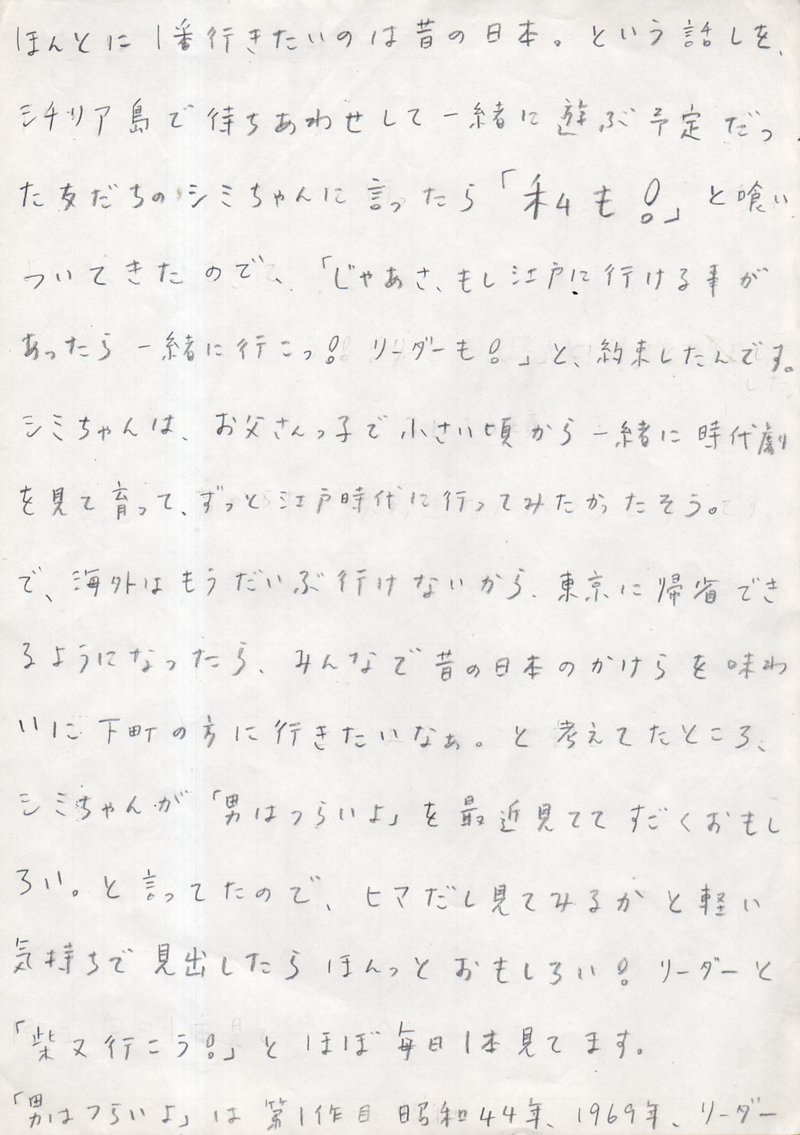 ほんとに1番行きたいのは昔の日本。という話しを、
シチリア島で待ちあわせして一緒に遊ぶ予定だっ
た友だちのシミちゃんに言ったら「私も!」と喰い
ついてきたので、「じゃあさ、もし江戸に行ける事が
あったら一緒に行こっ! リーダーも!」と、約束したんです。
シミちゃんは、お父さんっ子で小さい頃から一緒に時代劇
を見て育って、ずっと江戸時代に行ってみたかったそう。
で、海外はもうだいぶ行けないから、東京に帰省でき
るようになったら、みんなで昔の日本のかけらを味わ
いに下町の方に行きたいなぁ。と考えてたところ、
シミちゃんが「男はつらいよ」を最近見ててすごくおもし
ろい。と言ってたので、ヒマだし見てみるかと軽い
気持ちで見出したらほんっとおもしろい! リーダーと
「柴又行こう!」とほぼ毎日1本見てます。
「男はつらいよ」は第1作目 昭和44年、1969年、リーダー